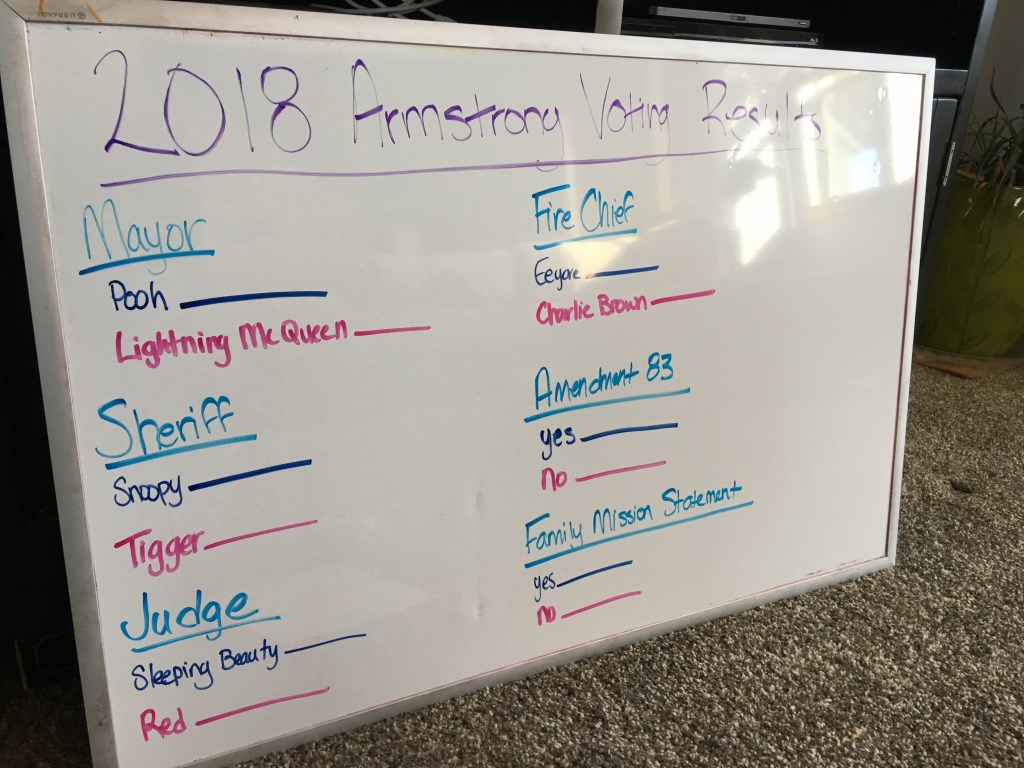 2018 Armstrong Voting Results
Mayor
Pooh
Lightning McQueen
Sheriff
Snoopy
Tigger
Judge
Sleeping Beauty
Red
Fire Chief
Eeyore
Charlie Brown
Amendment 83
yes
no
Family Mission Statement
yes
no